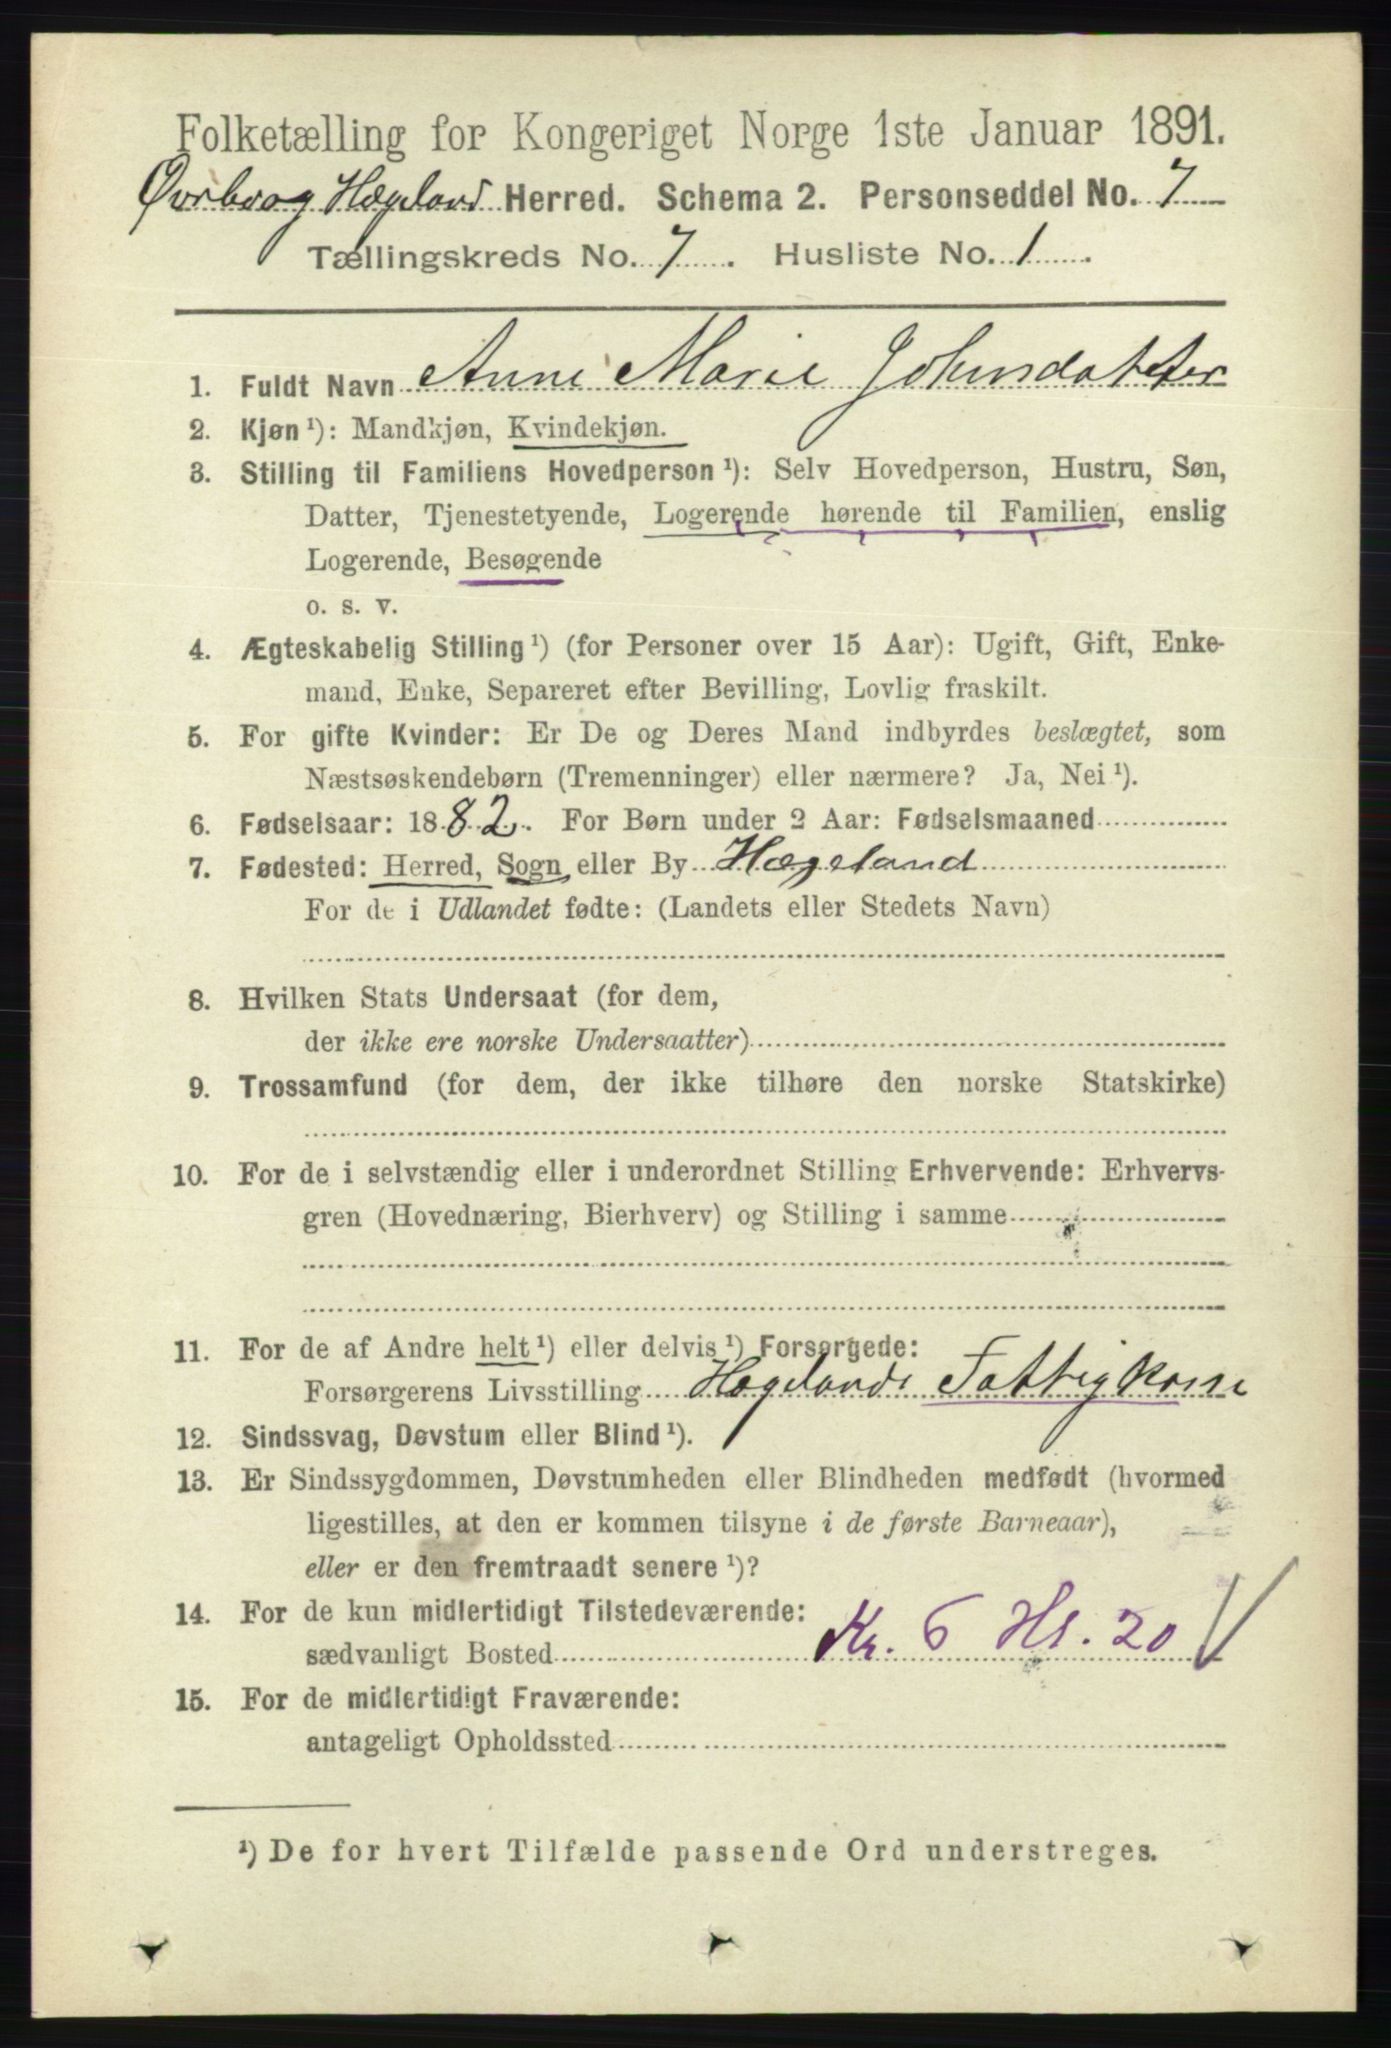 Folketælling for Kongeriget Norge 1ste Januar 1891.
Øvrebø og Hægeland Herred. Schema 2. Personseddel No. 7
Tællingskreds No. 7. Husliste No. 1.
1. Fuldt Navn Anne Marie Johnsdatter
2. Kjøn ¹): Mandkjøn, Kvindekjøn.
3. Stilling til Familiens Hovedperson ¹): Selv Hovedperson, Hustru, Søn,
Datter, Tjenestetyende, Logerende hørende til Familien, enslig
Logerende, Besøgende
o. s. v.
4. Ægteskabelig Stilling ¹) (for Personer over 15 Aar): Ugift, Gift, Enke-
mand, Enke, Separeret efter Bevilling, Lovlig fraskilt.
5. For gifte Kvinder: Er De og Deres Mand indbyrdes beslægtet, som
Næstsøskendebørn (Tremenninger) eller nærmere? Ja, Nei ¹).
6. Fødselsaar: 1882. For Børn under 2 Aar: Fødselsmaaned
7. Fødested: Herred, Sogn eller By Hægeland
For de i Udlandet fødte: (Landets eller Stedets Navn)
8. Hvilken Stats Undersaat (for dem,
der ikke ere norske Undersaatter)
9. Trossamfund (for dem, der ikke tilhøre den norske Statskirke)
10. For de i selvstændig eller i underordnet Stilling Erhvervende: Erhvervs-
gren (Hovednæring, Bierhverv) og Stilling i samme
11. For de af Andre helt ¹) eller delvis ¹) Forsørgede:
Forsørgerens Livsstilling Hægelands Fattigkasse
12. Sindssvag, Døvstum eller Blind ¹).
13. Er Sindssygdommen, Døvstumheden eller Blindheden medfødt (hvormed
ligestilles, at den er kommen tilsyne i de første Barneaar),
eller er den fremtraadt senere ¹)?
14. For de kun midlertidigt Tilstedeværende:
sædvanligt Bosted Kr. 6 Hs. 20 V
15. For de midlertidigt Fraværende:
antageligt Opholdssted
¹) De for hvert Tilfælde passende Ord understreges.